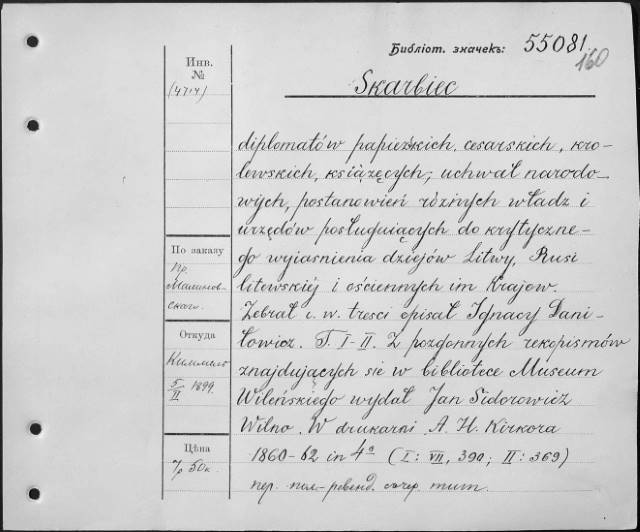 Библіот. значекъ: 55081.
160
Инв.
№
(4714)
Skarbiec
diplomatów papiezkich, cesarskich, kro-
lewskich, książęcych; uchwał narodo-
wych, postanowień różnych władz i
urzędów posługujących do krytyczne-
go wyjasnienia dziejów Litwy, Rusi
litewskiéj i ościennych im Krajow.
Zebrał i w tresci opisał Ignacy Dani-
łowicz. T. I-II. Z pozgonnych rekopismów
znajdujących sie w bibliotece Museum
Wileńskiego wydał Jan Sidorowicz
Wilno. W drukarni A. H. Kirkora
1860-62 in 4º (I: VII, 390; II: 369)
пер.
По заказу
Пр.
Малинов-
скаго.
Откуда
Киммель
5/II 1899.
Цѣна
7р 50к.